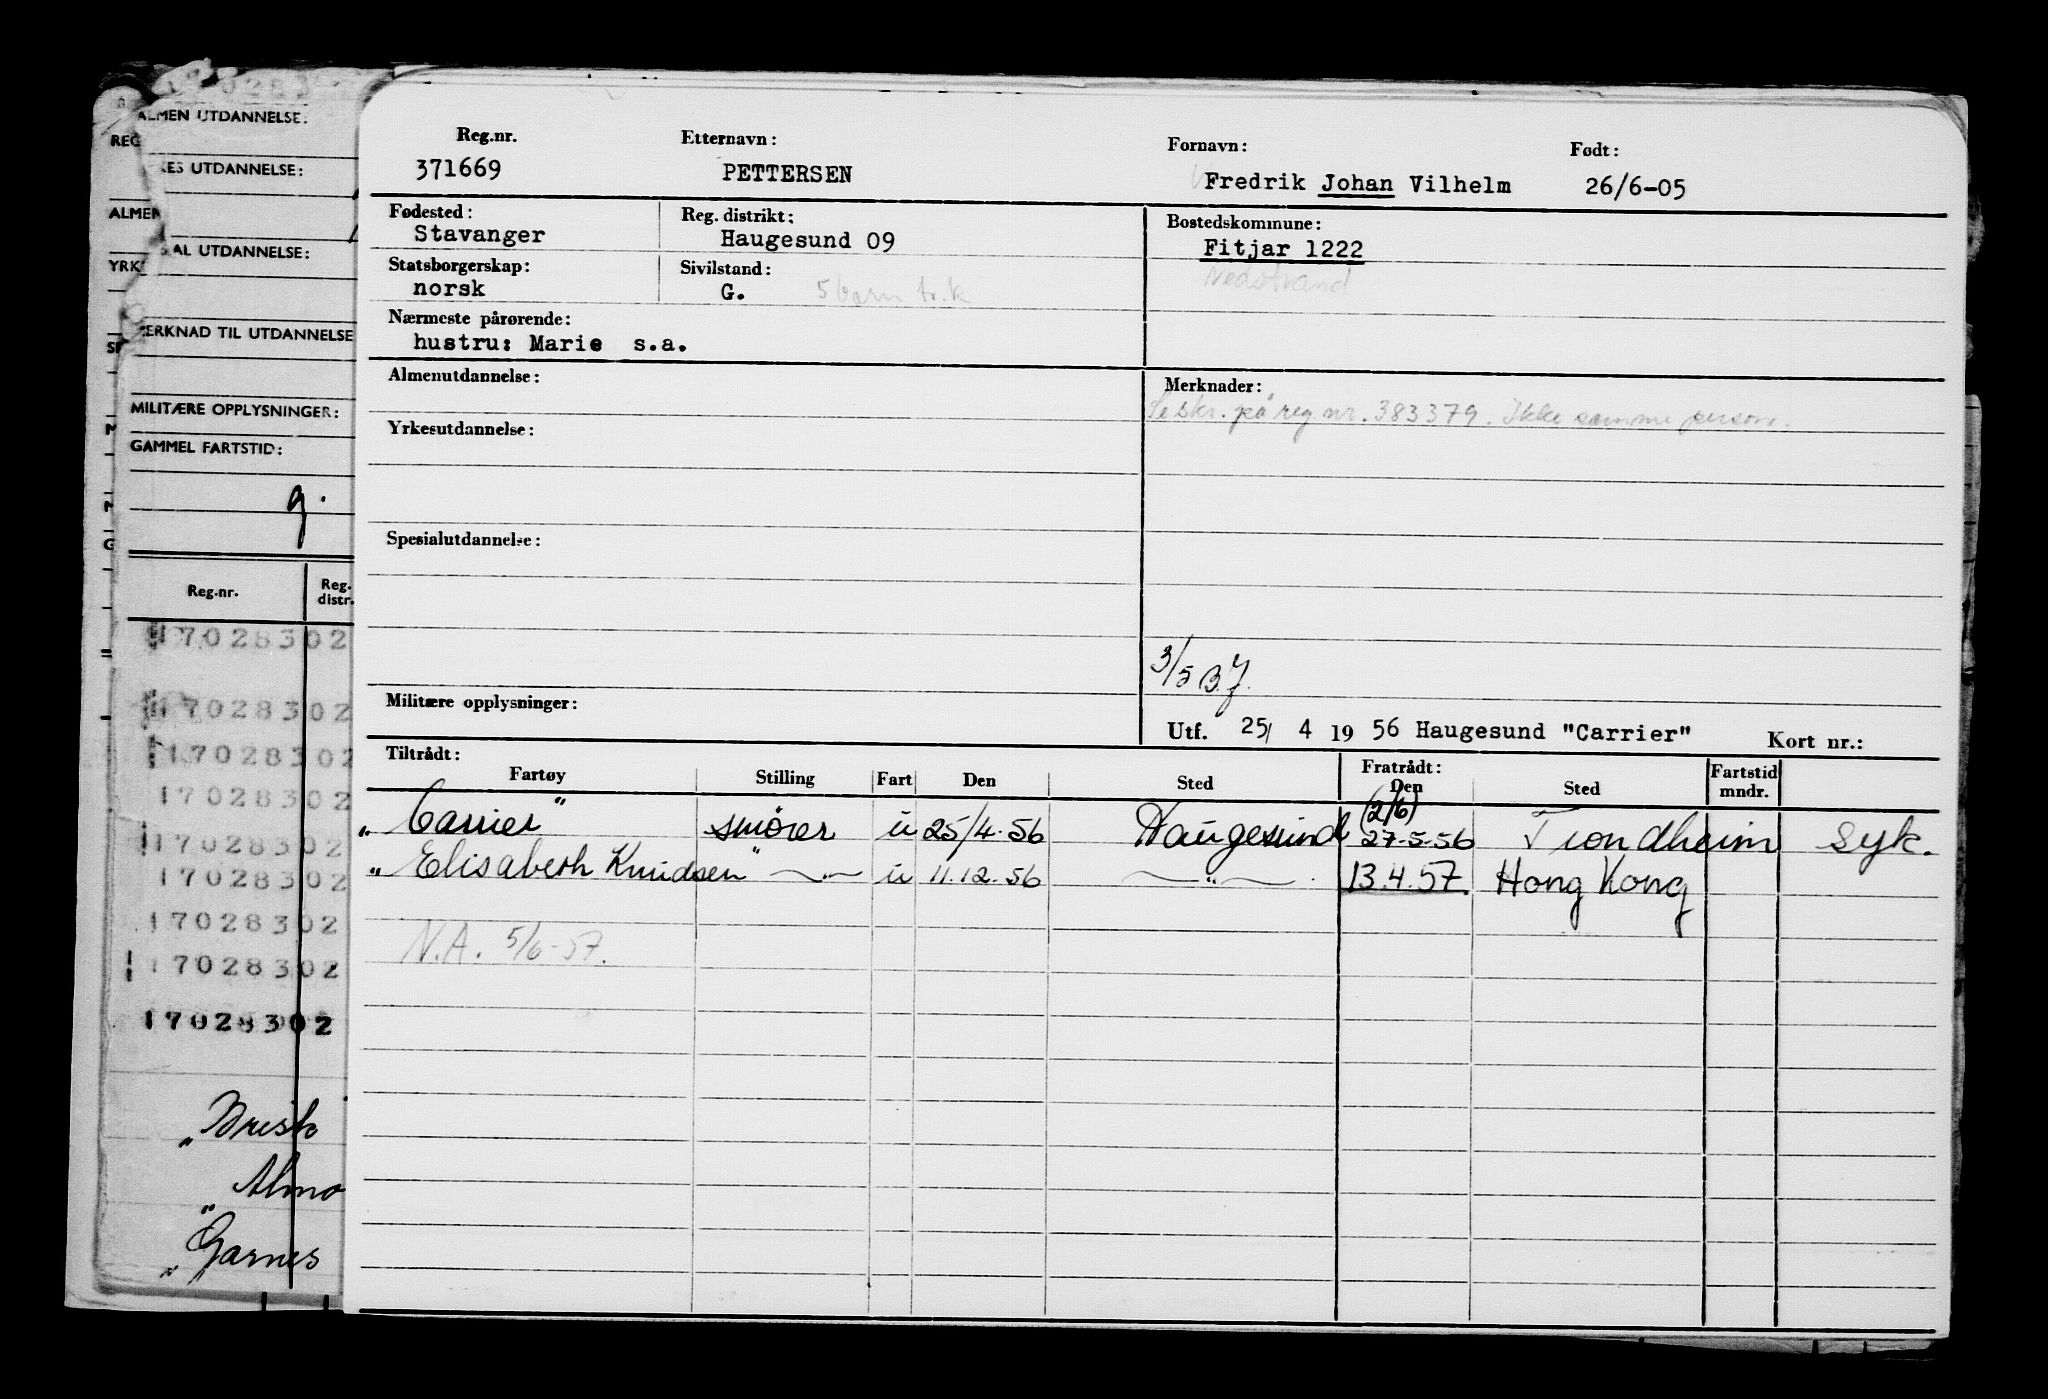 ALMEN UTDANNELSE:
REG
KES UTDANNELSE:
ALMEN
AL UTDANNELSE:
YRK
ERKNAD TIL UTDANNELSE
MILITÆRE OPPLYSNINGER:
GAMMEL FARTSTID:
g.
Reg.nr. Reg. distr.
17028302
17028302
17028302
17028302
17028302
17028302
17028302
17028302
17028302
„Brisk
„Almo
„Garnes
Reg.nr. Etternavn: Fornavn: Født:
371669 PETTERSEN Fredrik Johan Vilhelm 26/6-05
Fødested: Reg. distrikt: Bostedskommune:
Stavanger Haugesund 09 Fitjar 1222
Statsborgerskap: Sivilstand: Nedstrand
norsk G. 5 barn tr.k
Nærmeste pårørende:
hustru: Marie s.a.
Almenutdannelse: Merknader:
Se skr. på reg nr. 383379. Ikke samme person.
Yrkesutdannelse:
Spesialutdannelse:
3/5 B.J.
Militære opplysninger:
Utf. 25/ 4 19 56 Haugesund "Carrier" Kort nr.:
Tiltrådt: Fratrådt:
Fartøy Stilling Fart Den Sted Den Sted Fartstid mndr.
(2/6)
„Carrier" smører u 25/4.56 Haugesund 27-5-56 Trondheim syk.
„Elisabeth Knudsen" —"— u 11.12.56 —"— 13.4.57. Hong Kong
N.A. 5/6-57.